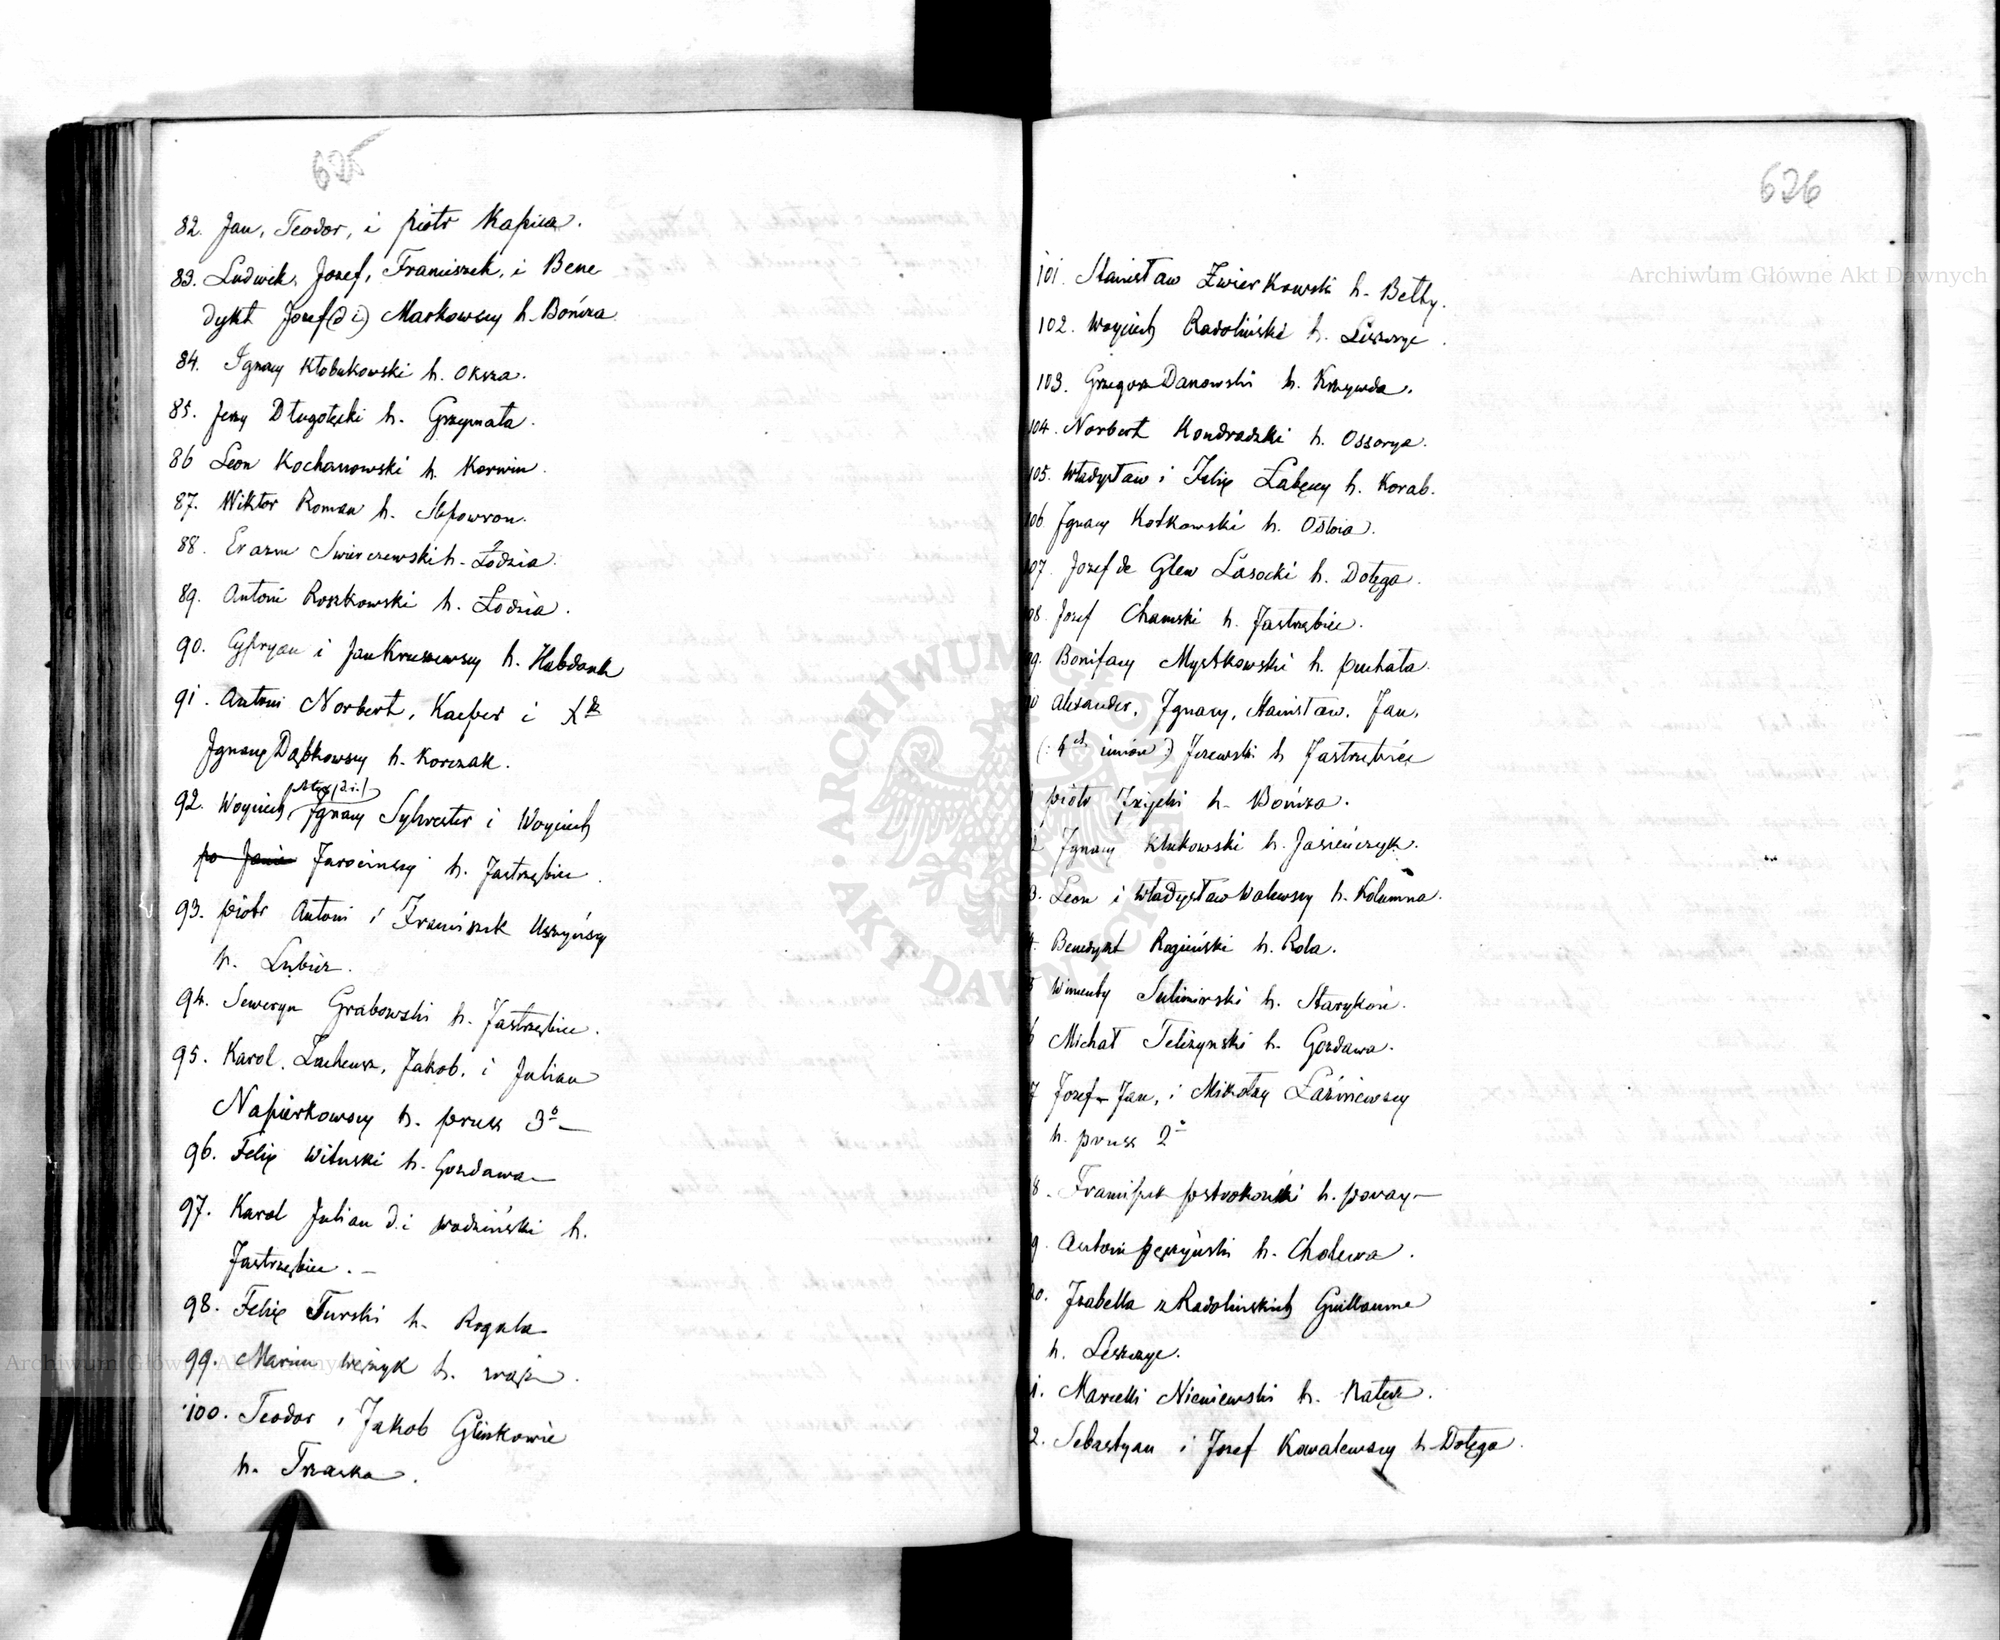 625
82. Jan, Teodor, i Piotr Kapica.
83. Ludwik, Jozef, Franciszek, i Bene
dykt Jozef (d i) Markowscy h. Bończa
84. Ignacy Kłobukowski h. Oksza.
85. Jerzy Długołęcki h. Grzymała.
86 Leon Kochanowski h. Korwin.
87. Wiktor Roman h. Ślepowron.
88. Erazm Swierczewski h. Łodzia.
89. Antoni Roszkowski h. Łodzia.
90. Cypryan i Jan Kruszewscy h. Habdank
91. Antoni Norbert, Kacper i Xdz
Ignacy Dąbkowscy h. Korczak.
92. Woyciech Ignacy Sylwester i Woyciech
po Janie Jarocinscy h. Jastrzębiec.
93. Piotr Antoni i Franciszek Uszyńscy
h. Lubicz.
94. Seweryn Grabowski h. Jastrzębiec.
95. Karol, Zacheusz, Jakob, i Julian
Napiórkowscy h. Pruss 3o
96. Felix Wituski h. Gozdawa
97. Karol Julian d. i Wodziński h.
Jastrzębiec.
98. Felix Turski h. Rogala
99. Marcin Wężyk h. Wąż.
100. Teodor i Jakob Glinkowie
h. Trzaska.
626
101. Stanisław Zwierkowski h. Bełty.
102. Woyciech Radoliński h. Leszczyc.
103. Grzegorz Danowski h. Krzywda.
104. Norbert Kondradzki h. Ossorya.
105. Władysław i Felix Łabęccy h. Korab.
106 Ignacy Kotkowski h. Ostoia.
107. Jozef de Glew Lasocki h. Dołęga.
08. Jozef Chamski h. Jastrzębiec.
09. Bonifacy Mystkowski h. Puchała.
10 Alexander, Ignacy, Stanisław, Jan,
(: 4ch imion :) Jezewski h Jastrzębiec
1 Piotr h. Bończa.
2 Ignacy Klukowski h. Jasieńczyk.
3. Leon i Władysław Walewscy h. Kolumna.
4. Benedykt Rogieński h. Rola.
5 Wincenty Sulimirski h. Starykoń.
6 Michał Teliżynski h. Gozdawa.
7 Jozef Jan, i Mikołay Łaźniewscy
h. Pruss 2o
8. Franciszek Pstrokoński h. Poray
9. Antoni Pęczyński h. Cholewa.
20. Izabella z Radolinskich Guillaume
h. Leszczyc.
1. Marcelli Nieniewski h. Nałęcz.
2. Sebastyan i Jozef Kowalewscy h. Dołęga.
Archiwum Główne Akt Dawnych
Archiwum Główne Akt Dawnych
ARCHIWUM GŁÓWNE AKT DAWNYCH